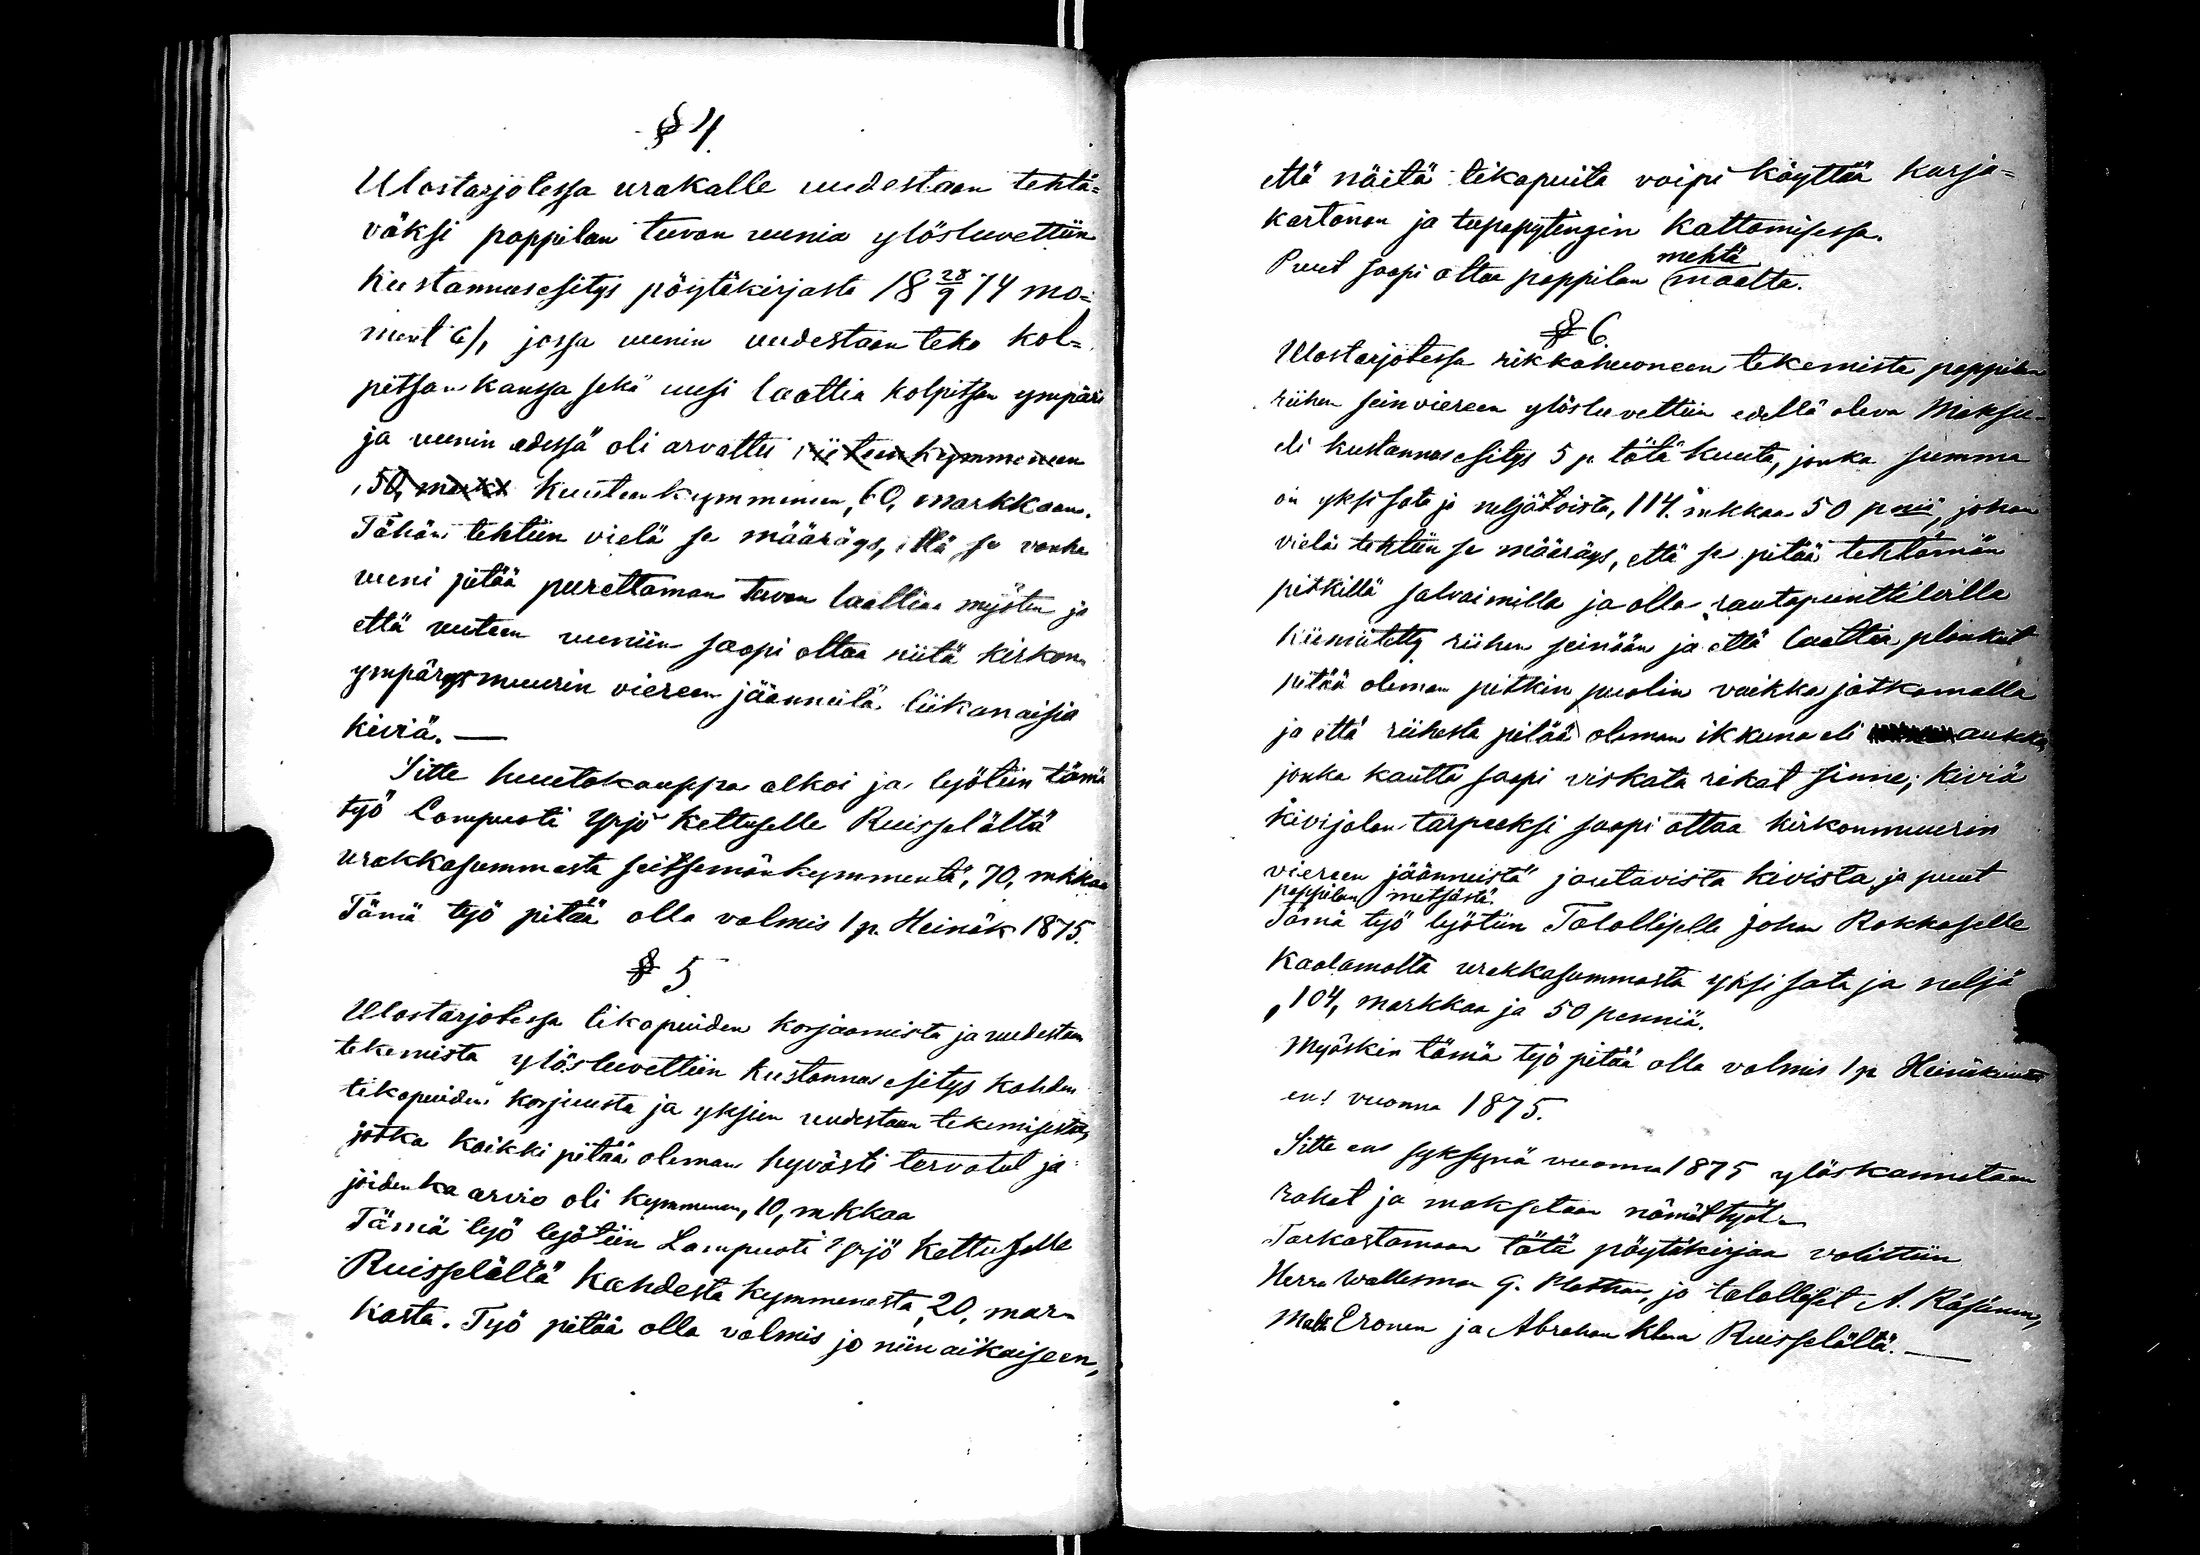 § 4.
Ulostarjotessa urakalle uudestaan tehtä=
väksi pappilan tuvan uunia ylösluvettiin
kustannusesitys pöytäkirjasta 18 28/9 74 mo=
ment 6/, jossa uunin uudestaan teko kol=
pitsan kanssa sekä uusi laattia kolpitsan ympäri
ja uunin edessä oli arvattu viiteenkymmeneen
, 50, markk kuuteenkymmeneen, 60, markkaan.
Tähän tehtiin vielä se määräys, että se vanha
uuni pitää purettaman tuvan laattiaa myöten ja
että uuteen uuniin saapi ottaa niitä kirkon
ympärysmuurin viereen jääneitä liikanaisia
kiviä. —
Sitte huutokauppa alkoi ja lyötiin tämä
työ Lampuoti Yrjö Kettuselle Ruisselältä
urakkasummasta seitsemänkymmentä, 70, mkkaa
Tämä työ pitää olla valmis 1 p. Heinäk 1875.
§ 5
Ulostarjotessa tikapuiden korjaamista ja uudestaan
tekemista ylösluvettiin kustannus esitys kahden
tikapuiden korjuusta ja yksien uudestaan tekemisestä,
jotka kaikki pitää oleman hyvästi tervatut ja
joidenka arvio oli kymmenen, 10, mkkaa
Tämä työ lyötiin Lampuoti Yrjö Kettuselle
Ruisselältä kahdesta kymmenesta, 20, mar=
kasta. Työ pitää olla valmis jo niin aikaiseen,
että näitä tikapuita voipi käyttää karja=
kartanon ja tupapytingin kattamisessa.
mehtä
Puut saapi ottaa pappilan maalta.
§ 6.
Ulostarjotessa rikkahuoneen tekemista pappilan
riihen seinviereen ylösluvettiin edellä oleva Maksu=
eli kustannusesitys 5 p tätä kuuta, jonka summa
on yksi sata ja neljätoista, 114. mkkaa 50 pniä, johon
vielä tehtiin se määräys, että se pitää tehtämän
pitkillä salvaimilla ja olla rautapunttiloilla
kiinnitetty riihen seinään ja että laattia plankut
pitää oleman pitkin puolin vaikka jatkamalla
ja että riihesta pitää oleman ikkuna eli aukko
jonka kautta saapi viskata rikat sinne, kiviä
kivijalan tarpeeksi saapi ottaa kirkonmuurin
viereen jääneistä joutavista kivista, ja puut
pappilan metsästä.
Tämä työ lyötiin Talolliselle Johan Rokkaselle
Kaalamolta urakkasummasta yksi sata ja neljä
, 104, markkaa ja 50 penniä.
Myöskin tämä työ pitää olla valmis 1 p Heinäkuuta
ens vuonna 1875.
Sitte ens syksynä vuonna 1875 ylöskannetaan
rahat ja maksetaan nämät työt.
Tarkastamaan tätä pöytäkirjaa valittiin
Herra Wallesman G. ja talolliset A. Räsänen,
Matti Eronen ja Abraham Ruisselältä. —